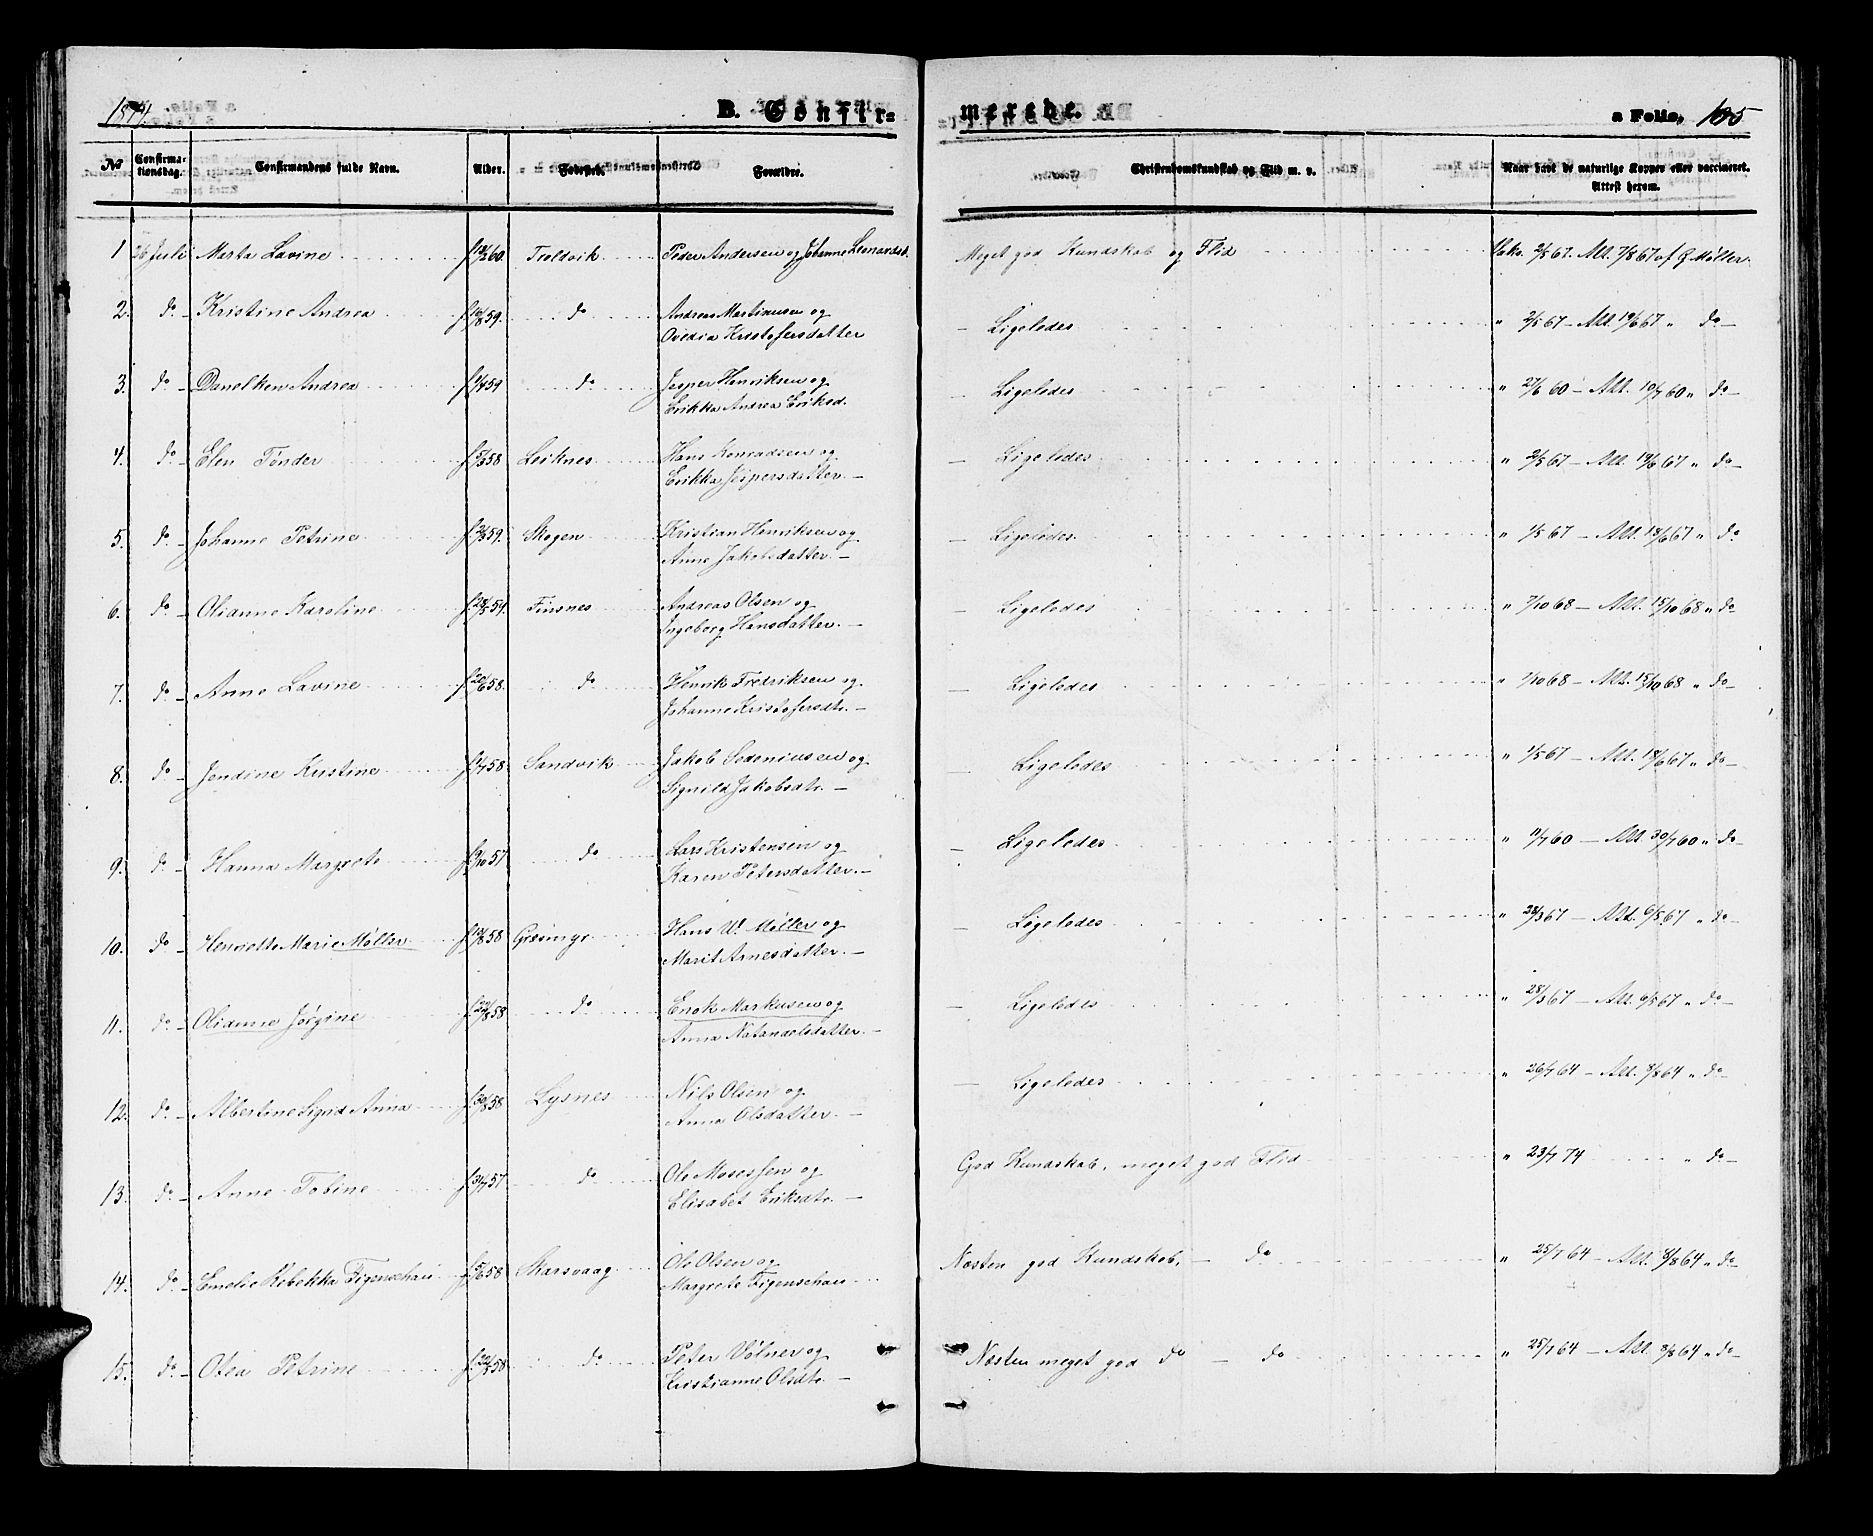 1874.
B. Confir=
merede.
a Folio, 105
No Confirmationsdag. Confirmandens fulde Navn. Alder. Fødested. Forældre. Christendomskundskab og Flid m. v. Naar havt de naturlige Kopper eller vaccineret. Attest herom.
1 26 Juli Marta Lavine f 60 Troldvik Peder Andersen og Johanne Leonardsd. Meget god Kundskab og Flid Vakc. 2/5 67. Att. 7/8 67 af Ø. Møller.
2. do – Kristine Andrea f 59. do Andreas Martinusen og
Ovedia Kristofersdatter – Ligeledes " 2/5 67 – Att. 19/6 67 " do –
3. do – Danelken Andrea f 59 do Jesper Henriksen og
Erikka Andrea Eriksd. – Ligeledes " 27/6 60 – Att. 10/7 60 " do –
4. do – Elen Tønder f 58 Leiknes Hans Konradsen og
Erikka Jespersdatter. – – Ligeledes " 2/5 67 – Att. 19/6 67 " do –
5. do – Johanne Petrine f 59. Skogen Kristian Henriksen og
Anne Jakobsdatter. – – Ligeledes. " 1/5 67 – Att. 18/6 67 " do
6. do – Olianne Karoline f 59. Finsnes Andreas Olsen og
Ingeborg Hansdatter. – – Ligeledes " 7/10 68 – Att. 15/10 68 " do
7. do – Anne Lavine f 20/6 58. do Henrik Fredriksen og
Johanne Kristofersdtr. – – Ligeledes " 1/10 68 – Att. 15/10 68 " do –
8. do – Jendine Kristine f 58. Sandvik Jakob Sedeniusen og
Signild Jakobsdtr. – – Ligeledes " 1/5 67 – Att. 18/6 67 " do –
9. do – Hanna Margrete f 9/10 57 do Lars Kristensen og
Karen Petersdatter. – – Ligeledes " 11/7 60 – Att. 30/7 60 " do –
10. do – Henriette Marie Møller f 58 Græsmyr Hans W. Møller og
Marit Arnesdatter. – – Ligeledes " 28/3 67 – Att. 6/5 67 " do –
11. do – Olianne Jørgine f 22/8 58 do Enok Markusen og
Anna Natanaelsdatter. – – Ligeledes " 28/3 67 – Att. 6/5 67 " do –
12. do – Albertine Sigrid Anna f 30/8 58 Lysnes Nils Olsen og
Anna Olsdatter. – – Ligeledes " 26/7 64 – Att. 8/8 64 " do –
13. do – Anne Tobine f 31/7 57 do Ole Mosessen og
Elisabet Eriksdtr. – God Kundskab, meget god Flid " 23/7 74 " do –
14. do – Emelie Rebekka Figenschau f 5/6 58 Skarsvaag Ole Olsen og
Margrete Figenschau Næsten god Kundskab, – do " 25/7 64 – Att. 8/8 64 " do –
15. do – Otea Petrine f 58. do Peter Vølner og
Kristianne Olsdtr. – Næsten meget god do – do " 25/7 64 – Att. 8/8 64 " do –